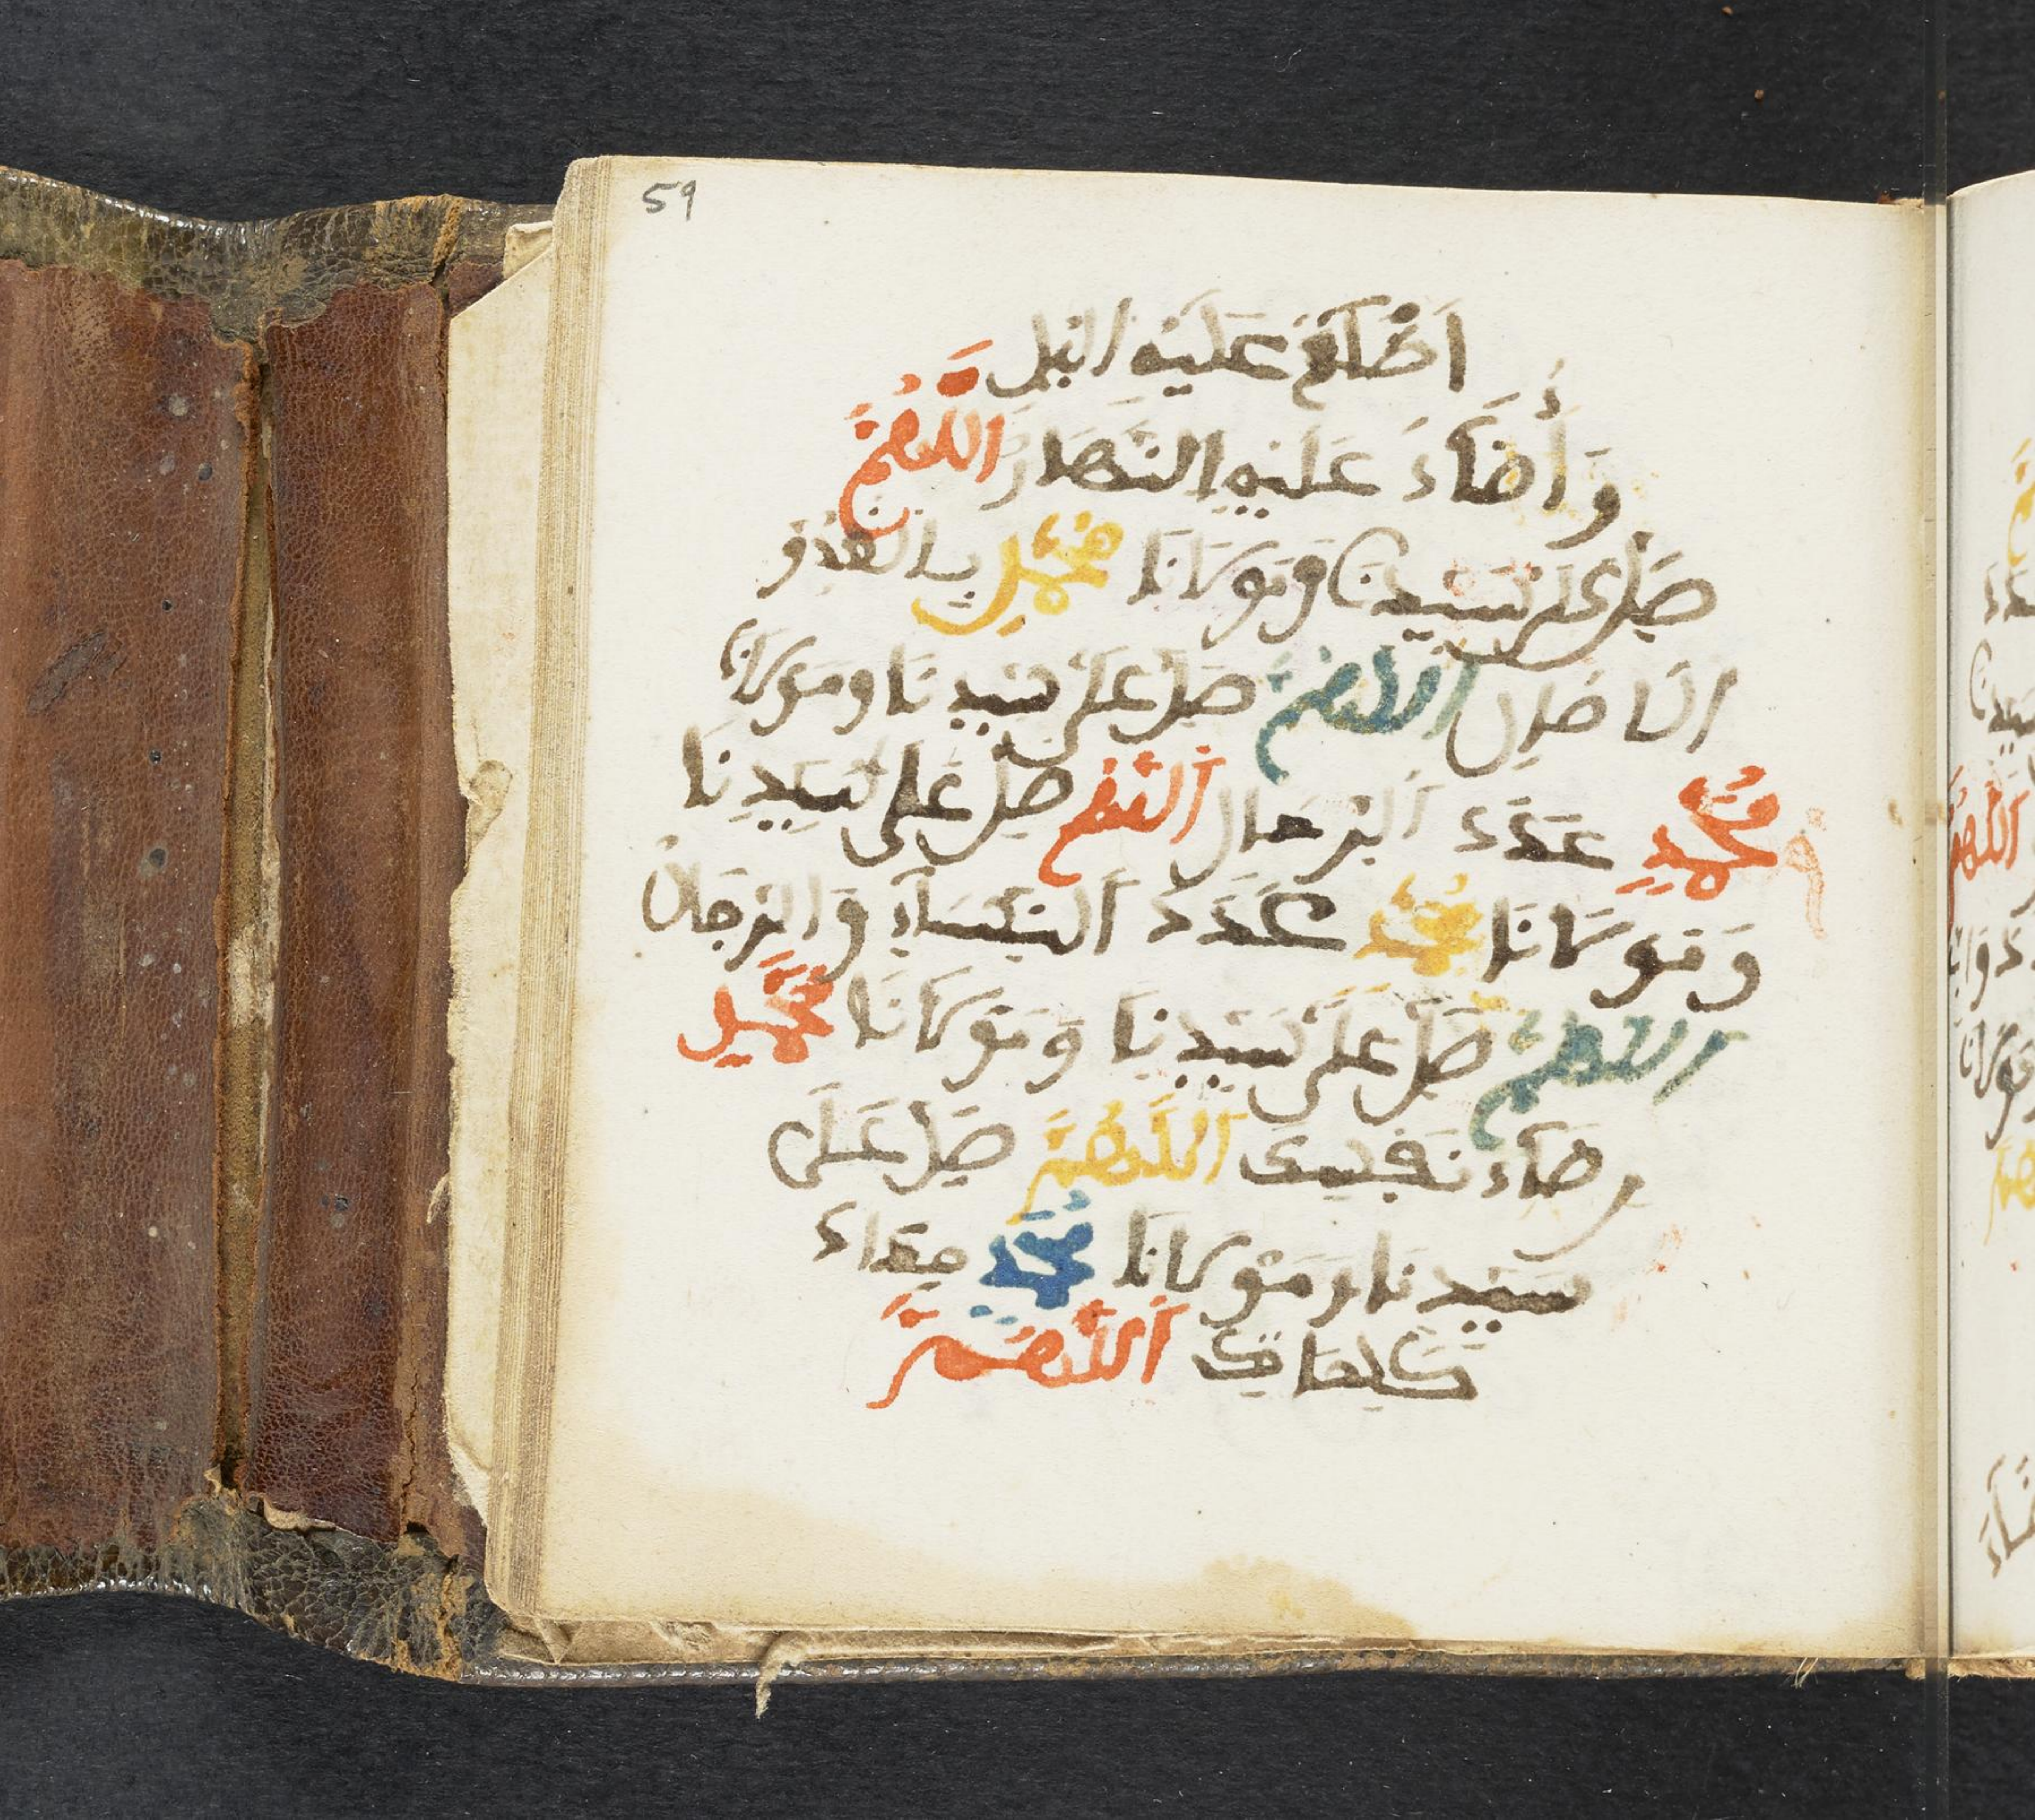 59
اَظْلَمَ عَلَيْهِ اليْل
وَأَضَآءَ عَلَيْهِ النَّهَارُ اللَّهُمَّ
صَلِّ عَلَى سَيِّدِنَا وَمَوْلَانَا مُحَمَّدٍ بِالْغُدُوِّ
اللهُمَّ صَلِّ عَلَى سَيِّدِنَا ومَوْلَانَا
مُحَمَّدٍ عَدَدَ الرِّمَالِ اللَّهُمَّ صَلِّ عَلَى سَيِّدِنَا
وَمَوْلَانَا مُحَمَّدٍ عَدَدَ النِّسَآءِ وَالرِّجَالِ
اللَّهُمَّ صَلِّ عَلَى سَيِّدِنَا وَمَوْلَانَا مُحَمَّدٍ
رِضَآءَ نَفْسِكَ اللَّهُمَّ صَلِّ عَلَى
سَيِّدِنَا وَمَوْلَانَا مُحَمَّدٍ مِدَادَ
كَلِمَاتِكَ اللَّهُمَّ